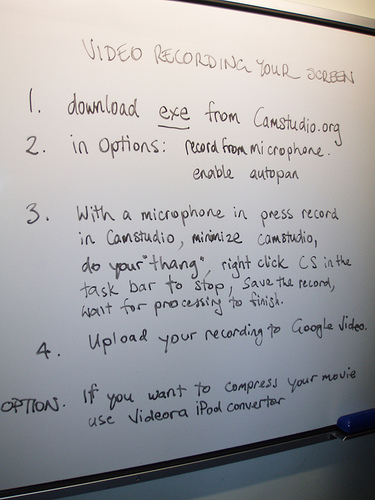 VIDEO RECORDING YOUR SCREEN
1. download exe from Camstudio.org
2. in Options: record from microphone.
enable autopan
3. With a microphone in press record
in Camstudio, minimize camstudio,
do your "thang", right click CS in the
task bar to stop, save the record,
wait for processing to finish.
4. Upload your recording to Google Video.
OPTION. If you want to compress your movie
use Videora iPod convertor